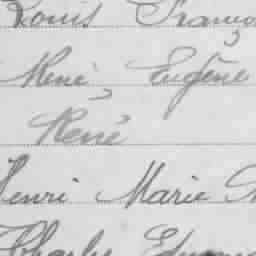 Louis Franço
René, Eugène
René
Henri Marie
Charles Edmon